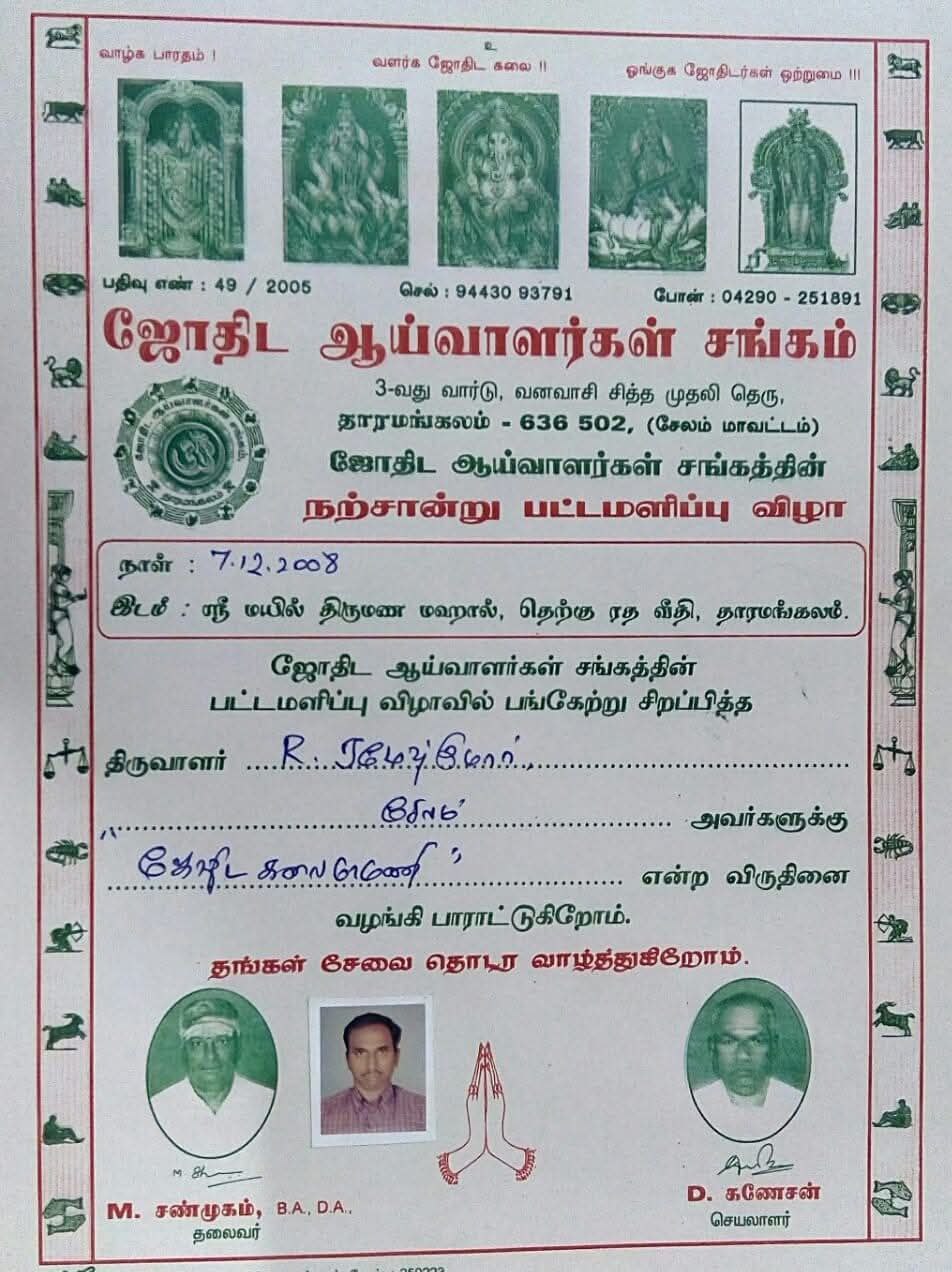 உ
வாழ்க பாரதம் ! வளர்க ஜோதிட கலை !! ஓங்குக ஜோதிடர்கள் ஒற்றுமை !!!
பதிவு எண் : 49 / 2005 செல் : 94430 93791 போன் : 04290 - 251891
ஜோதிட ஆய்வாளர்கள் சங்கம்
3-வது வார்டு, வனவாசி சித்த முதலி தெரு,
தாரமங்கலம் - 636 502, (சேலம் மாவட்டம்)
ஜோதிட ஆய்வாளர்கள் சங்கம்,
தாரமங்கலம்
ஜோதிட ஆய்வாளர்கள் சங்கத்தின்
நற்சான்று பட்டமளிப்பு விழா
நாள் : 7.12.2008
இடம் : ஸ்ரீ மயில் திருமண மஹால், தெற்கு ரத வீதி, தாரமங்கலம்.
ஜோதிட ஆய்வாளர்கள் சங்கத்தின்
பட்டமளிப்பு விழாவில் பங்கேற்று சிறப்பித்த
திருவாளர் R. ரமேஷ்குமார்,
சேலம் அவர்களுக்கு
"ஜோதிட கலைமாமணி" என்ற விருதினை
வழங்கி பாராட்டுகிறோம்.
தங்கள் சேவை தொடர வாழ்த்துகிறோம்.
M. சண்முகம், B.A., D.A.,
தலைவர்
D. கணேசன்
செயலாளர்